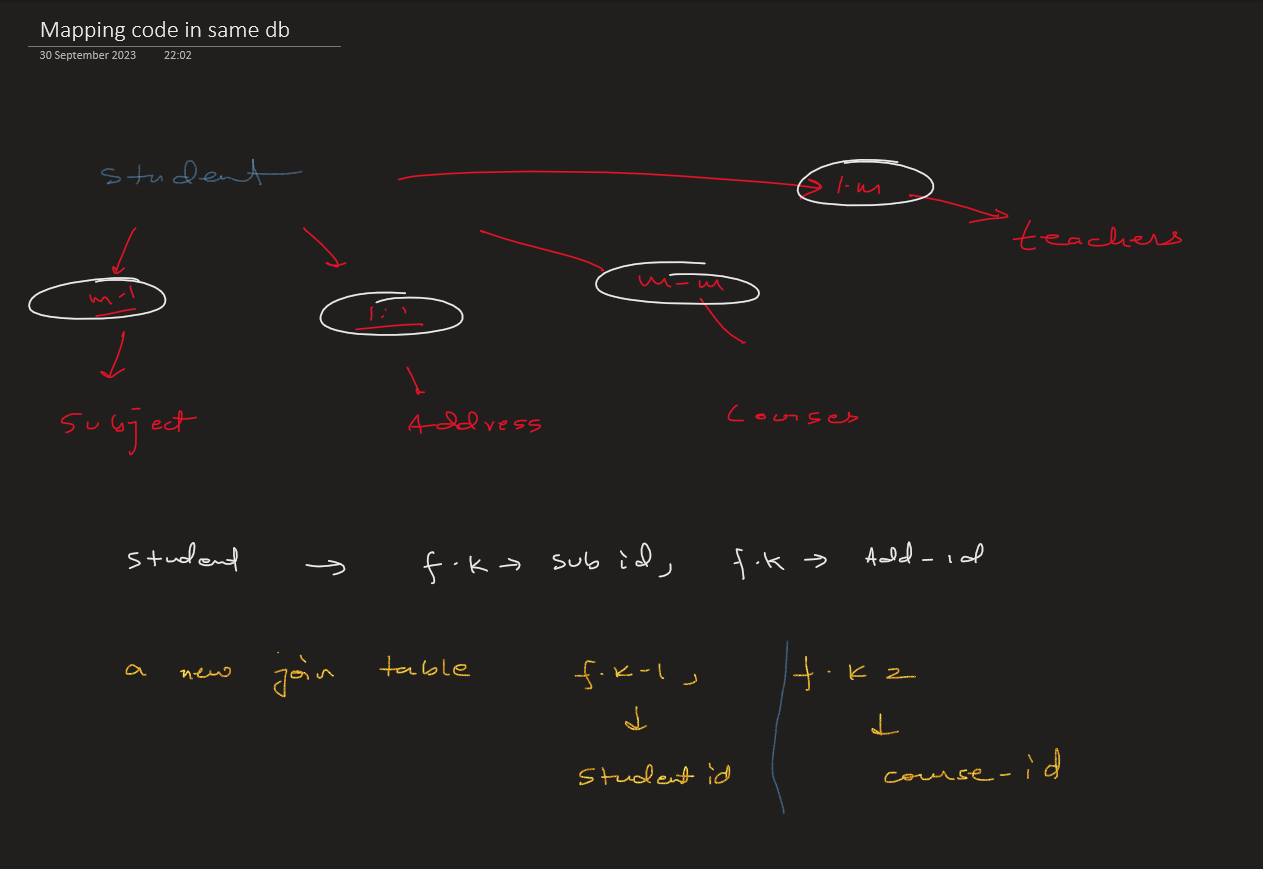 Mapping code in same db
30 September 2023 22:02
student
1.m
teachers
m.1
1:1
m-m
Subject
Address
Courses
Student → f.k → sub id, f.k → Add-id
a new join table f.k-1, f.k 2
↓ ↓
Student id course-id